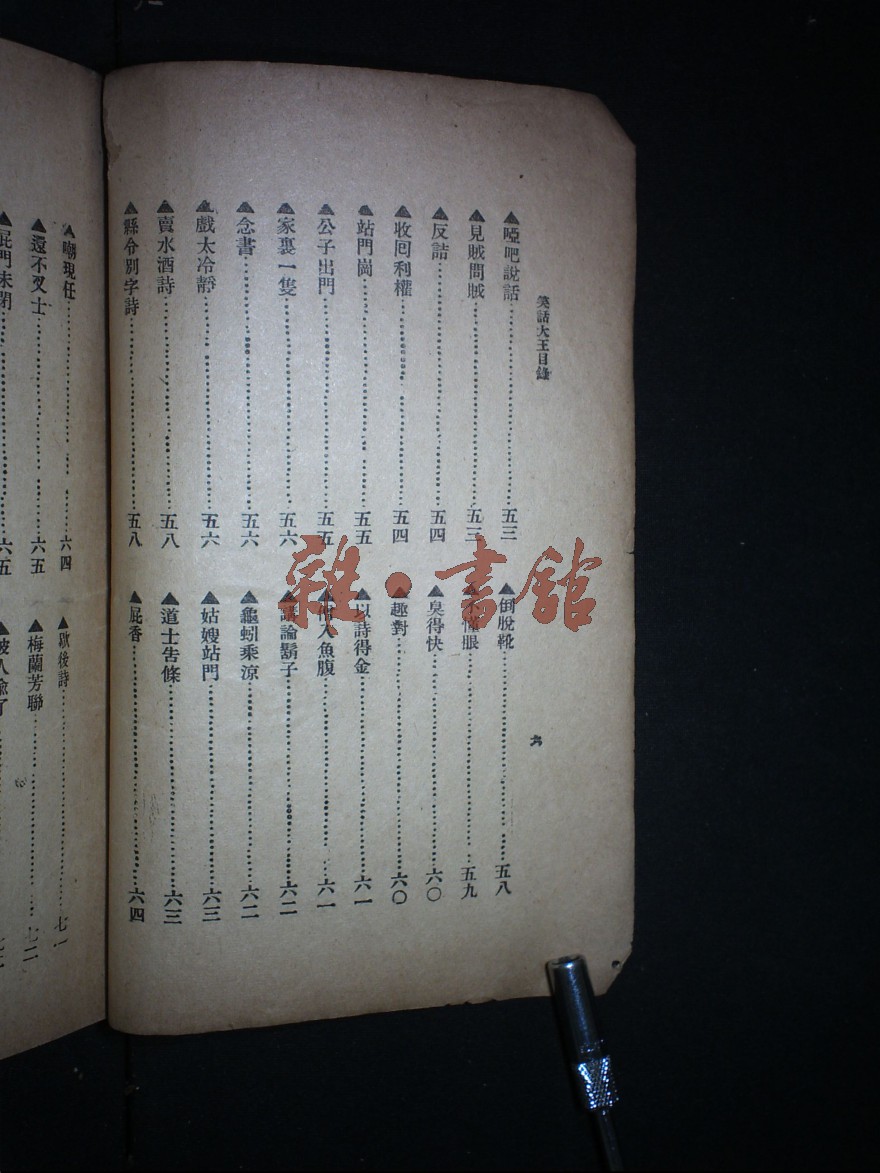 笑話大王目錄
六
▲啞吧說話 五三
▲見賊問賊 五三
▲反詰 五四
▲收回利權 五四
▲站門崗 五五
▲公子出門 五五
▲家裏一隻 五六
▲念書 五六
▲戲太冷靜 五六
▲賣水酒詩 五八
▲縣令別字詩 五八
▲倒脫靴 五八
▲不懂眼 五九
▲臭得快 六〇
▲趣對 六〇
▲以詩得金 六一
人魚腹 六一
▲講論鬍子 六二
▲龜蚓乘涼 六二
▲姑嫂站門 六三
▲道士告條 六三
▲屁香 六四
▲嘲現任 六四
▲還不叉士 六五
▲屁門未閉 六五
▲歇後詩 七一
▲梅蘭芳聯 七二
雜·書館